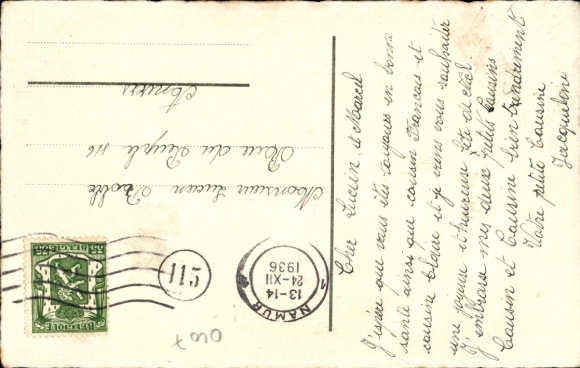 Cher Lucien et Marcel
J'espère que vous êtes toujours en bonne
santé ainsi que cousin Francois et
cousine Claire et je viens vous souhaiter
une joyeuse et heureuse fête de Noël.
J'embrasse mes deux petits cousins
Cousin et Cousine bien tendrement
Votre petite Cousine
Jacqueline
Monsieur Lucien
Rue du Peuple 116
Anvers
NAMUR 1
13-14
24-XII
1936
115
BELGIQUE
35
BELGIE